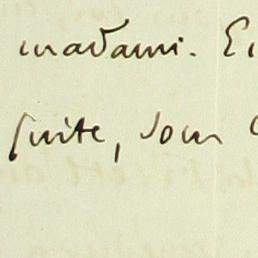 madami. E
suite, sous